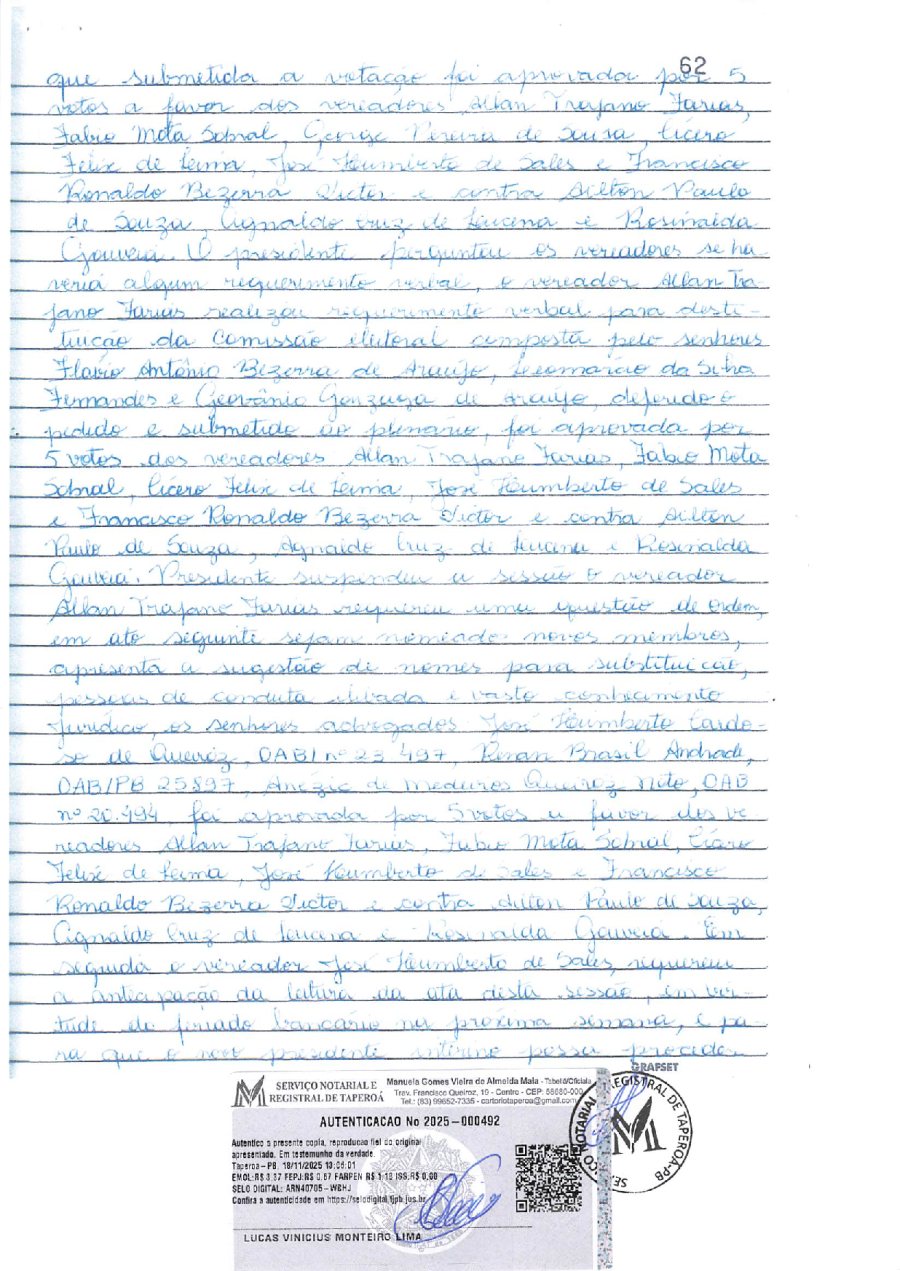 62
que submetida a votação foi aprovada por 5
votos a favor dos vereadores Allan Trajano Farias,
Fabio Mota Sobral, George Pereira de Sousa, Cícero
Felix de Leima, José Humberto de Sales e Francisco
Ronaldo Bezerra Victor e contra Ailton Paulo
de Souza, Agnaldo Cruz de Lucena e Rosinalda
Gouveia. O presidente perguntou os vereadores se ha-
veria algum requerimento verbal, o vereador Allan Tra-
jano Farias realizou requerimento verbal para desti-
tuição da Comissão eleitoral composta pelo senhores
Flavio Antônio Bezerra de Araújo, Leomárcio da Silva
Fernandes e Geovânio Gonzaga de Araújo, deferido o
pedido e submetido ao plenário, foi aprovada por
5 votos dos vereadores Allan Trajano Farias, Fabio Mota
Sobral, Cícero Felix de Leima, José Humberto de Sales
e Francisco Ronaldo Bezerra Victor e contra Ailton
Paulo de Souza, Agnaldo Cruz de Lucena e Rosinalda
Gouveia. Presidente suspendeu a sessão o vereador
Allan Trajano Farias requereu uma questão de ordem,
em ato seguinte sejam nomeado novos membros,
apresenta a sugestão de nomes para substituição,
pessoas de conduta elevada e vasto conhecimento
jurídico, os senhores advogados José Humberto Cardo-
so de Queiroz, OAB/ nº 23 497, Renan Brasil Andrade,
OAB/PB 25897, Anézio de Medeiros Queiroz Neto, OAB
nº 20.494, foi aprovada por 5 votos a favor dos ve
readores Allan Trajano Farias, Fabio Mota Sobral, Cícero
Felix de Leima, José Humberto de Sales e Francisco
Ronaldo Bezerra Victor e contra Ailton Paulo de Souza,
Agnaldo Cruz de Lucena e Rosinalda Gouveia. Em
seguida o vereador José Humberto de Sales, requereu
a antecipação da leitura da ata desta sessão, em vir-
tude do feriado bancário na próxima semana, e pa-
ra que o novo presidente interino possa proceder
GRAFSET
SERVIÇO NOTARIAL E
REGISTRAL DE TAPEROÁ
Manuela Gomes Vieira de Almeida Maia - Tabeliã/Oficiala
Trav. Francisco Queiroz, 19 - Centro - CEP: 58680-000
Tel.: (83) 99652-7335 - cartoriotaperoa@gmail.com
AUTENTICACAO No 2025-000492
Autentico a presente copia, reproducao fiel do original
apresentado. Em testemunho da verdade.
Taperoa-PB, 18/11/2025 13:06:01
EMOL:R$ 3,37 FEPJ:R$ 0,67 FARPEN R$ 1,18 ISS:R$ 0,00
SELO DIGITAL: ARN40705-WBHJ
Confira a autenticidade em https://selodigital.tjpb.jus.br
LUCAS VINICIUS MONTEIRO LIMA
SERVIÇO NOTARIAL E REGISTRAL DE TAPEROÁ-PB